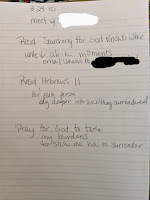 3.29.10
meet w/
Read Searching for God Knows What
write
email when to
Read Hebrews 11
for each person
dig deeper into how they surrendered
Pray for God to take
any burdens
to show me how to surrender